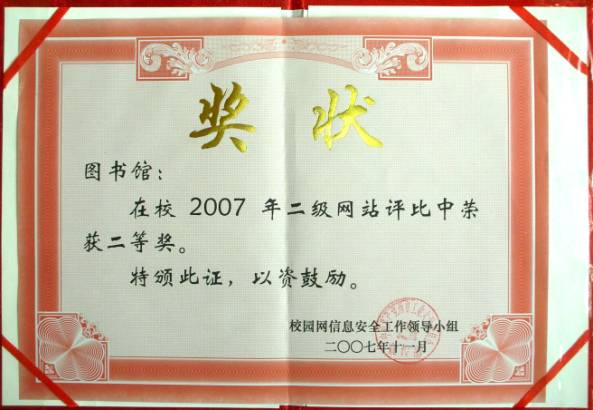 奖状
图书馆：
在校 2007 年二级网站评比中荣
获二等奖。
特颁此证，以资鼓励。
校园网信息安全工作领导小组
二〇〇七年十一月